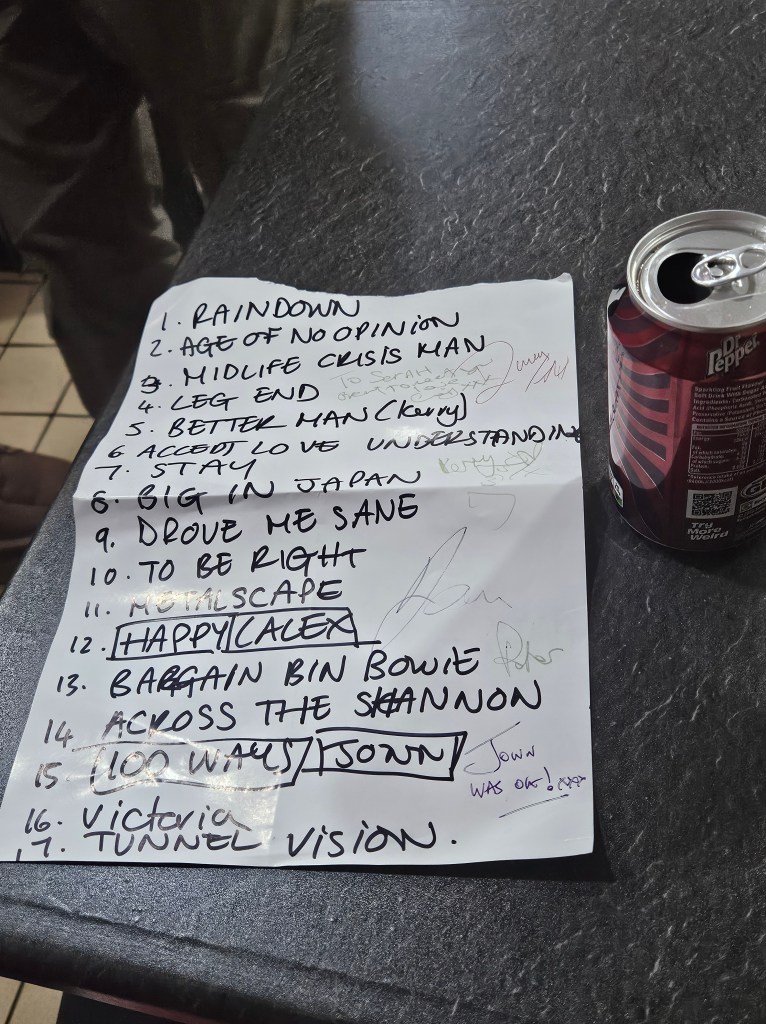 1. RAINDOWN
2. AGE OF NO OPINION
3. MIDLIFE CRISIS MAN
4. LEG END
TO SARAH
5. BETTER MAN (kerry)
6 ACCEPT LOVE UNDERSTANDING
7. STAY
8. BIG IN JAPAN
9. DROVE ME SANE
10. TO BE RIGHT
11. METALSCAPE
12. HAPPY (ALEX)
13. BARGAIN BIN BOWIE
14 ACROSS THE SHANNON
15 (100 WAYS) JONN
JOWN
WAS OK!
16. Victoria
17. TUNNEL VISION.
Dr Pepper
Try
More
Weird